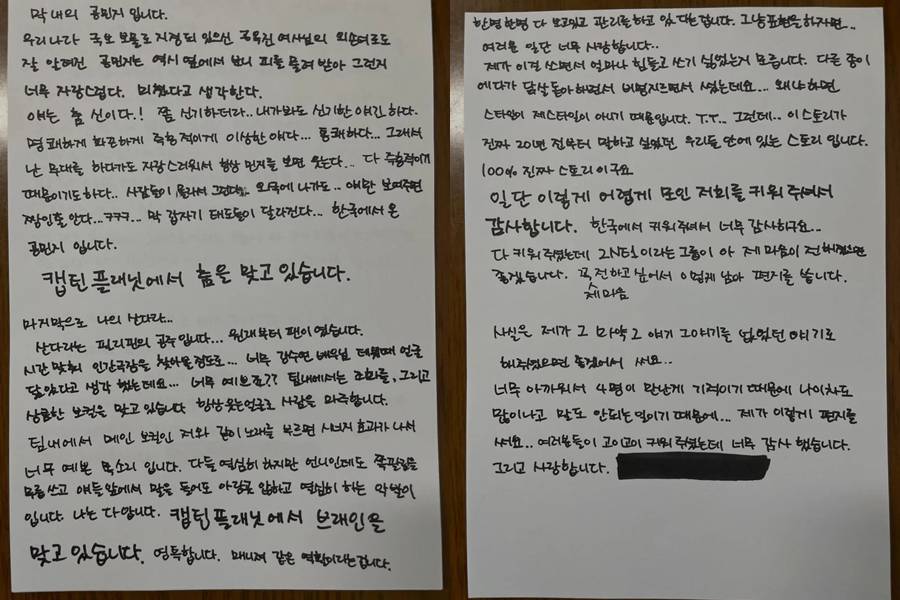 막내의 공민지 입니다.
우리나라 국보 보물로 지정되 있으신 공옥진 여사님의 외손녀로도
잘 알려진 공민지는 역시 옆에서 보니 피를 물려 받아 그런지
너무 자랑스럽다. 미쳤다고 생각한다.
얘는 춤 신이다.! 쫌 신기하더라.. 내가봐도 신기한 애긴 하다.
명쾌하게 화끈하게 즉흥적이게 이상한 애다... 통쾌하다... 그래서
난 무대를 하다가도 자랑스러워서 항상 민지를 보면 웃는다... 다 즉흥적이기
때문이기도 하다. 사람들이 몰라서 그런데.. 외국에 나가도.. 얘만 보여주면
짱인줄 안다...ㅋㅋㅋ... 막 갑자기 태도들이 달라진다... 한국에서 온
공민지 입니다.
캡틴 플래닛에서 춤을 맞고 있습니다.
마지막으로 나의 산다라...
산다라는 필리핀의 공주입니다... 원래부터 팬이였습니다.
시간 맞춰 인간극장을 찾아볼정도로... 너무 강수연 배우님 데뷔때 얼굴
닮았다고 생각 했는데요... 너무 예쁘죠?? 팀내에서는 조화를, 그리고
상큼한 보컬을 맞고 있습니다 항상 웃는얼굴로 사람을 마주합니다.
팀내에서 메인 보컬인 저와 같이 노래를 부르면 시너지 효과가 나서
너무 예쁜 목소리 입니다. 다들 열심히 하지만 언니인데도 쪽팔림을
무릅쓰고 얘들앞에서 말을 듣어도 아랑곳 않하고 열심히 하는 악발이
입니다. 나는 다 압니다. 캡틴 플래닛에서 브레인을
맞고 있습니다. 영특합니다. 매니저 같은 역확이라는겁니다.
한명한명 다 보고있고 관리를 하고 있다는겁니다. 그냥 표현을 하자면...
여러분 일단 너무 사랑합니다..
제가 이걸 쓰면서 얼마나 힘들고 쓰기 싫었는지 모릅니다. 다른 종이
에다가 발달돌아하면서 버면지으면서 썼는데요... 왜냐하면
스타일이 제스타일이 아니기 때문입니다. T.T... 그런데.. 이 스토리가
진짜 20년 전부터 말하고 싶었던 우리들 안에 있는 스토리 입니다.
100% 진짜 스토리 이구요
일단 이렇게 어렵게 모인 저희를 키워 주셔서
감사합니다. 한국에서 키워주셔서 너무 감사하구요..
다 키워 주셨는데 2NE1이라는 그룹이 아 제 마음이 전해졌으면
좋겠습니다. 꼭 전하고 싶어서 이렇게 남아 편지를 씁니다.
제마음
사실은 제가 그 마약 그 얘기 그얘기를 넘었던 얘기로
해주셨으면 좋겠어서 써요...
너무 아까워서 4명이 만난게 기적이기 때문에 나이차도
많이나고 말도 안되는 일이기 때문에... 제가 이렇게 편지를
써요.. 여러분들이 고이고이 키워 주셨는데 너무 감사 했습니다.
그리고 사랑합니다.